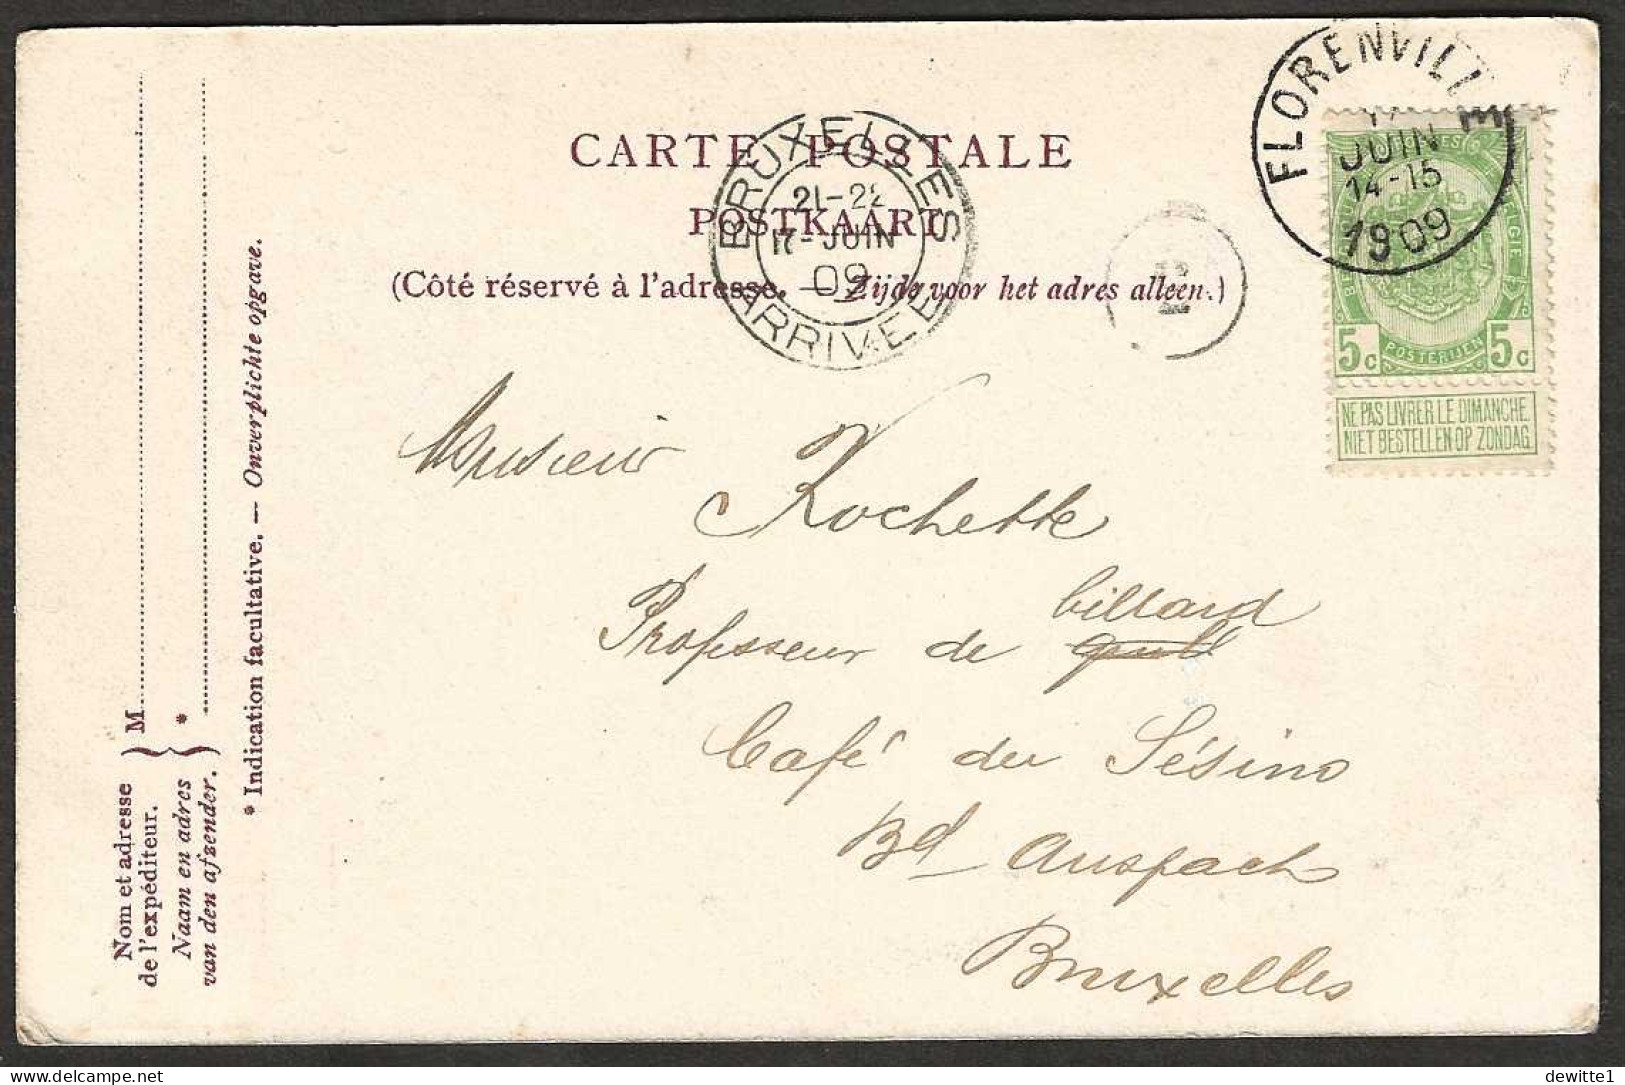 CARTE POSTALE
POSTKAART
(Côté réservé à l'adresse. — Zijde voor het adres alleen.)
BRUXELLES
21-22
17-JUIN
09
ARRIVEE
12
FLORENVILLE
17
JUIN
14-15
1909
5c POSTERIJEN 5c
NE PAS LIVRER LE DIMANCHE.
NIET BESTELLEN OP ZONDAG
Monsieur
Rochette
billard
Professeur de
Café du Sésino
Bd Anspach
Bruxelles
Nom et adresse
de l'expéditeur.
Naam en adres
van den afzender.
M
*
* Indication facultative. — Onverplichte opgave.
dewitte1